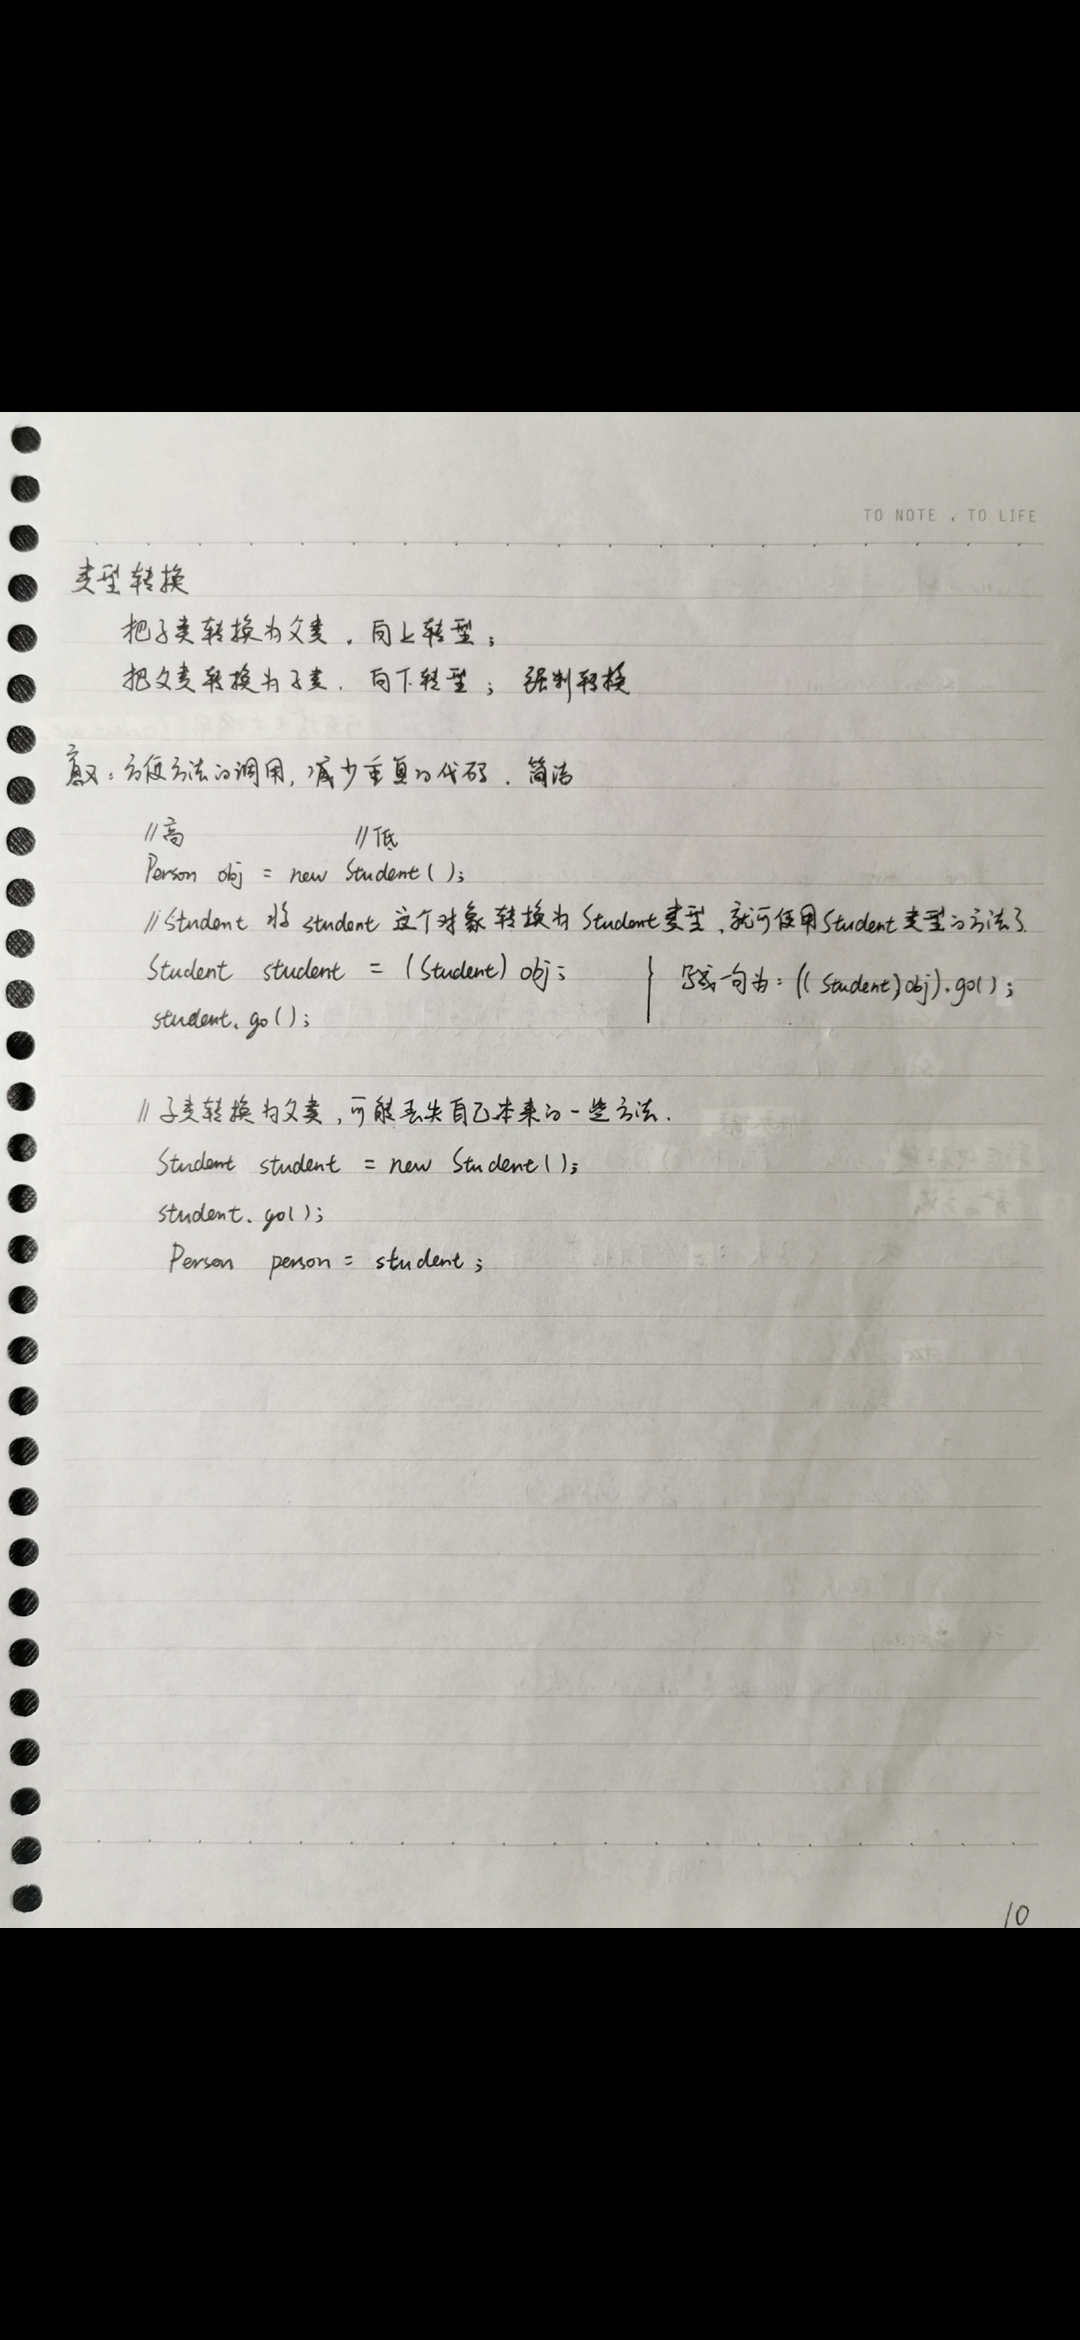 TO NOTE , TO LIFE
类型转换
把子类转换为父类，向上转型；
把父类转换为子类，向下转型；强制转换
意义：方便方法的调用，减少重复的代码，简洁
//高 //低
Person obj = new Student();
//Student 将 student 这个对象转换为 Student 类型，就可使用 Student 类型的方法了.
Student student = (Student) obj; 写成一句为：((Student)obj).go();
student.go();
// 子类转换为父类，可能丢失自己本来的一些方法.
Student student = new Student();
student.go();
Person person = student;
10